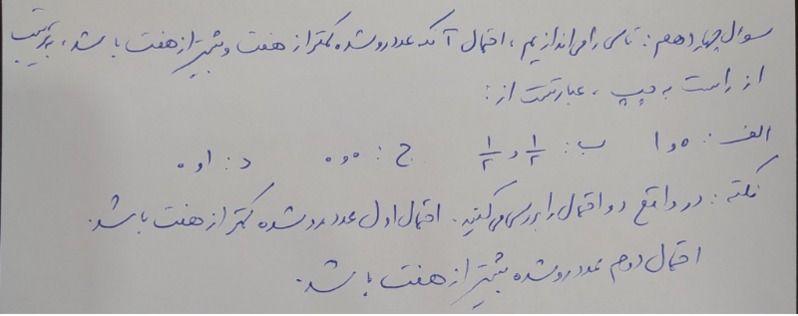 سوال چهاردهم: تاسی را می‌اندازیم، احتمال آنکه عدد رو شده کمتر از هفت و بیشتر از هفت باشد، به ترتیب
از راست به چپ، عبارتست از:
الف: ۰ و ۱ ب: ۱/۲ و ۱/۲ ج: ۰ و ۰ د: ۱ و ۰
نکته: در واقع دو احتمال را بررسی می‌کنید. احتمال اول عدد رو شده کمتر از هفت باشد.
احتمال دوم عدد رو شده بیشتر از هفت باشد.